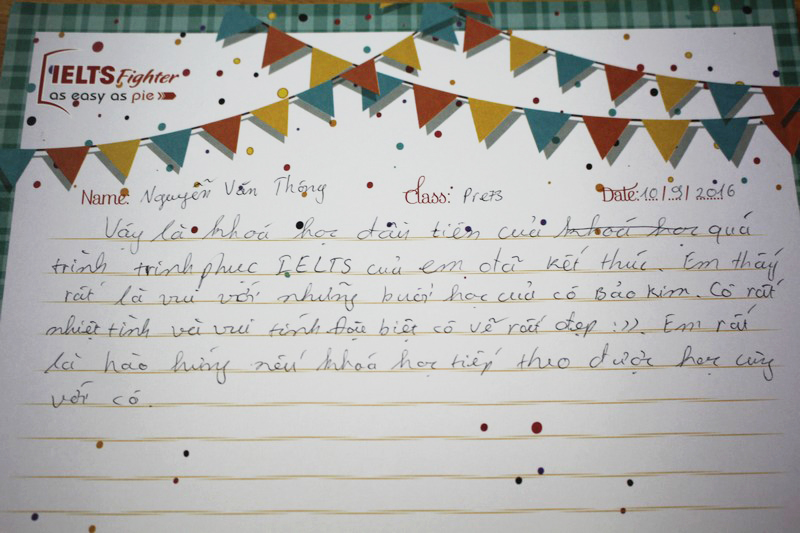 IELTS Fighter
as easy as pie
Name: Nguyễn Văn Thông Class: Pre73 Date: 10/9/2016
Vậy là khoá học đầu tiên của khoá học quá
trình trinh phục IELTS của em đã kết thúc. Em thấy
rất là vui với những buổi học của cô Bảo Kim. Cô rất
nhiệt tình và vui tính đặc biệt cô vẽ rất đẹp :)). Em rất
là hào hứng nếu khoá học tiếp theo được học cùng
với cô.